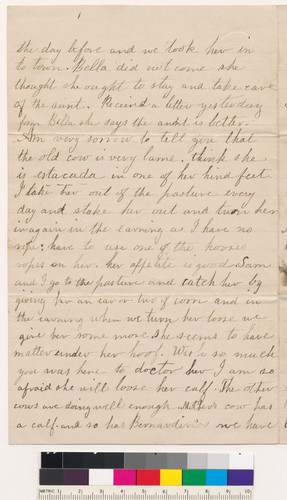 the day before and we took her in
to town. Bella did not come she
thought she ought to stay and take care
of the aunt. Received a letter yesterday
from Bella she says the aunt is better.
Am very sorrow to tell you that
the old cow is very lame, think she
is estacada in one of her hind feet
I take her out of the pasture every
day and stake her out and turn her
in again in the evening as I have no
rope, have to use one of the horses
ropes on her. her appetite is good Sam
and I go to the pasture and catch her by
giving her an ear or two of corn and in
the evening when we turn her loose we
give her some more. She seems to have
matter under her hoof. Wish so much
you was here to doctor her I am so
afraid she will loose her calf. The other
cows are doing well enough. Mother's cow has
a calf. and so has Bernardinis we have